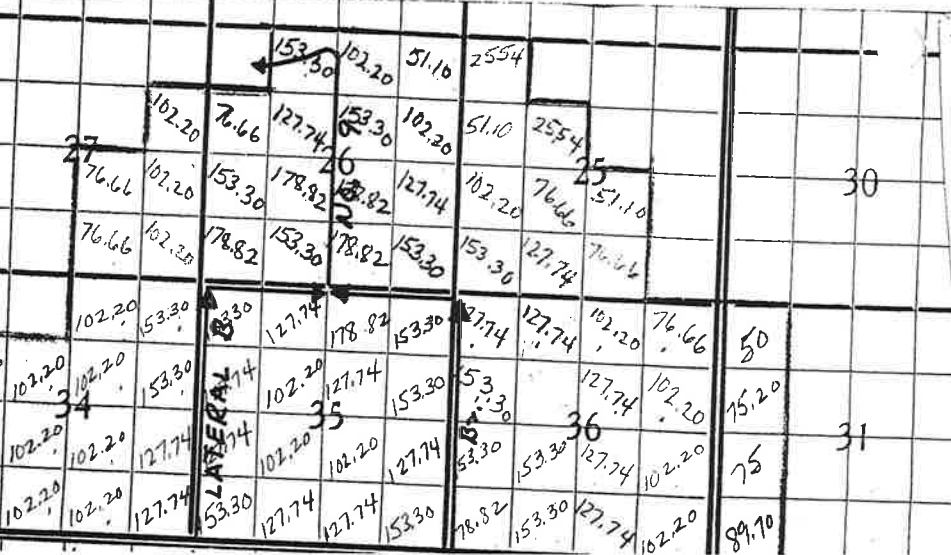 153.30 102.20 51.10 25.54
102.20 76.66 127.74 153.30 102.20 51.10 25.54
27 26 No. 9 25 30
76.66 102.20 153.30 178.82 127.74 102.20 76.66 51.10
76.66 102.20 178.82 153.30 178.82 153.30 153.30 127.74 76.66
102.20 153.30 127.74 178.82 153.30 127.74 102.20 76.66 50
102.20 102.20 153.30 102.20 127.74 153.30 153.30 127.74 102.20 75.20
34 LATERAL B 35 Br. 36 31
102.20 102.20 127.74 102.20 102.20 127.74 53.30 153.30 127.74 102.20 75
102.20 102.20 127.74 53.30 127.74 127.74 153.30 78.82 153.30 127.74 102.20 89.70